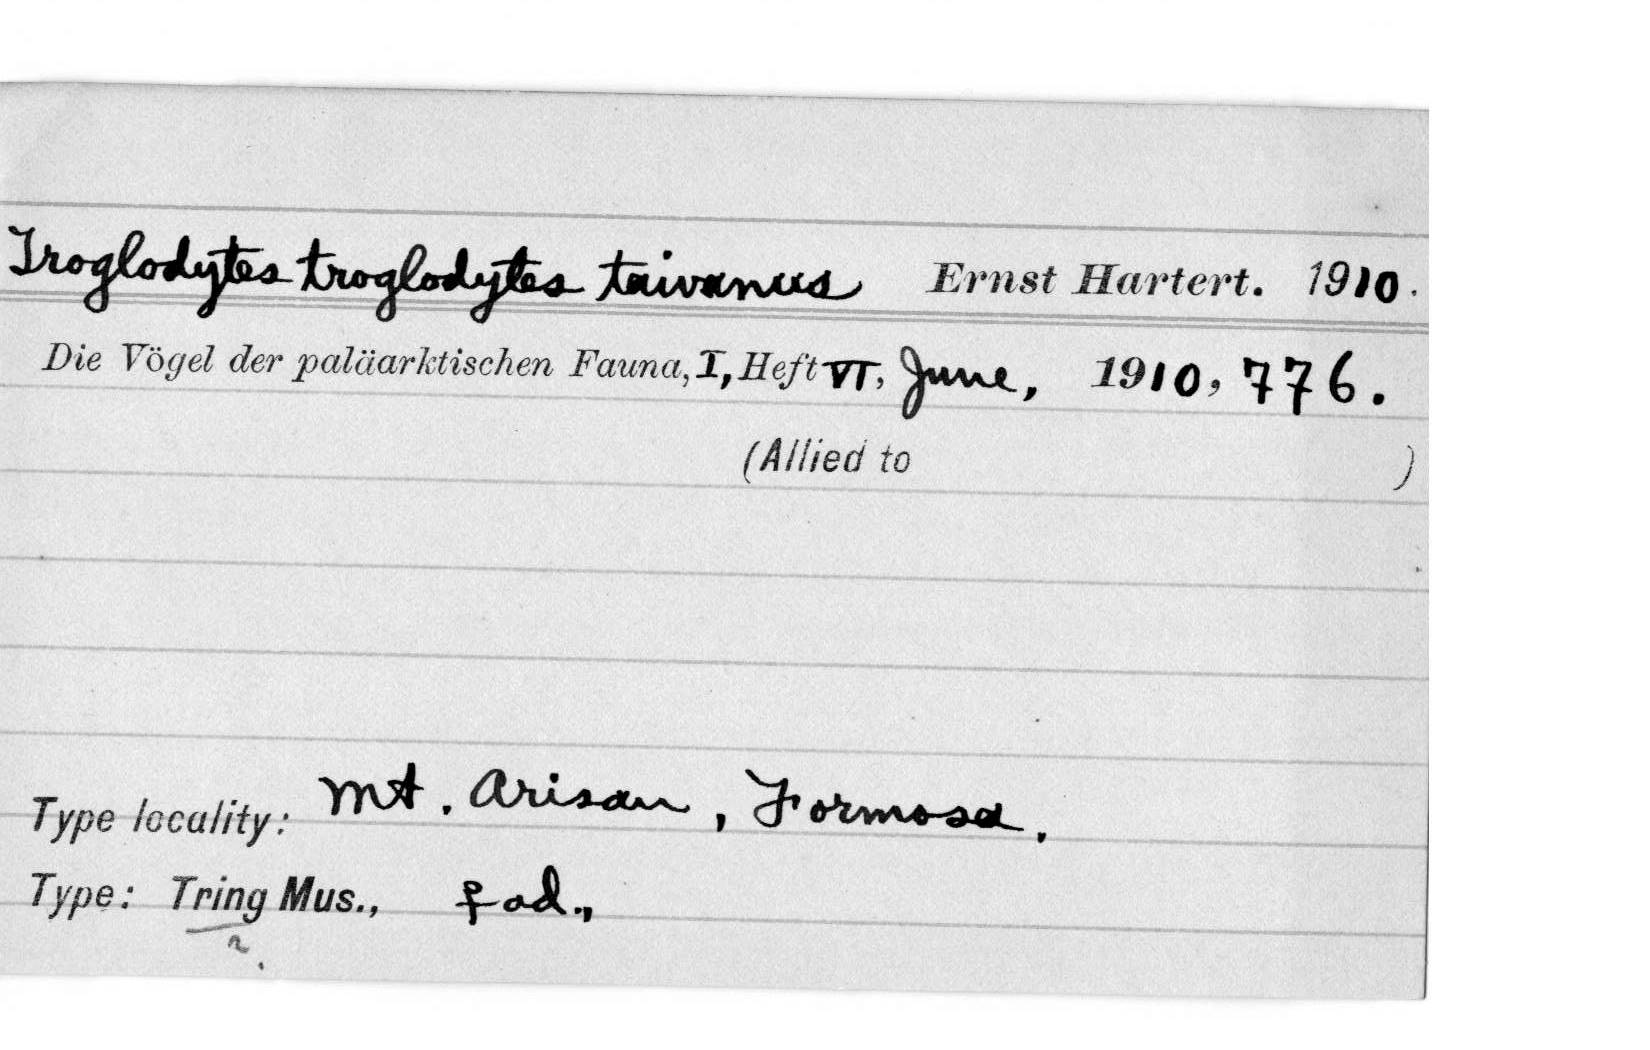 Troglodytes troglodytes taivanus Ernst Hartert. 1910.
Die Vögel der paläarktischen Fauna, I, Heft VI, June, 1910, 776.
(Allied to )
Type locality: Mt. Arisan, Formosa.
Type: Tring Mus., ♀ ad.,